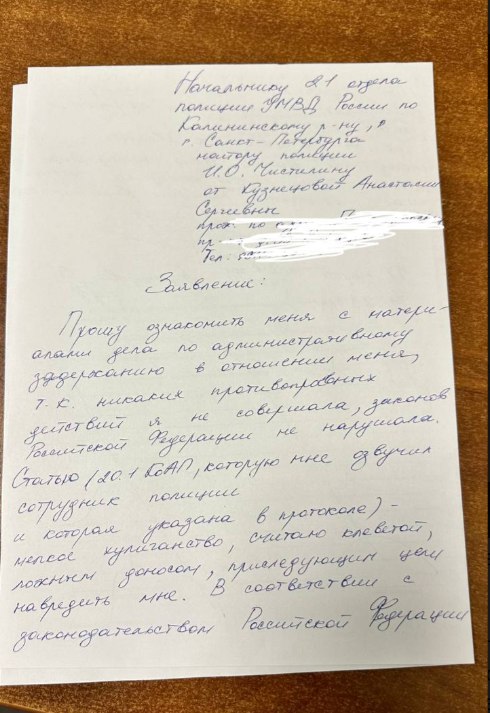 Начальнику 21 отдела
полиции УМВД России по
Калининскому р-ну,
г. Санкт-Петербурга
майору полиции
И.О. Чистилину
от Кузнецовой Анастасии
Сергеевны
прож. по
пр
Тел:
Заявление:
Прошу ознакомить меня с матери-
алами дела по административному
задержанию в отношении меня,
т.к. никаких противоправных
действий я не совершала, законов
Российской Федерации не нарушала.
Статью (20.1 КоАП, которую мне озвучил
сотрудник полиции
и которая указана в протоколе) -
мелкое хулиганство, считаю клеветой,
ложным доносом, приследующим цели
навредить мне. В соответствии с
законодательством Российской Федерации